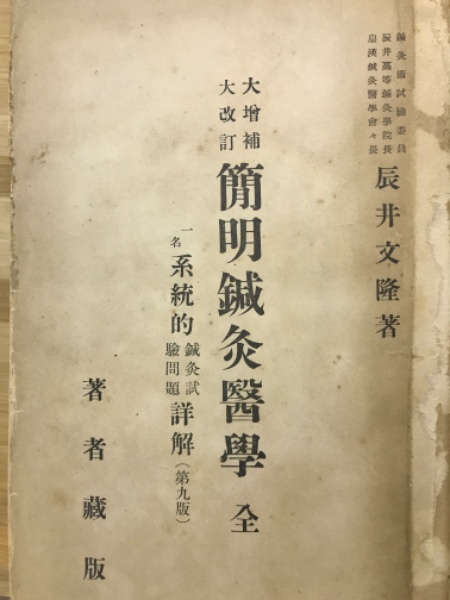 鍼灸術試驗委員
辰井高等鍼灸學院長
皇漢鍼灸醫學會々長
辰井文隆著
大增補
大改訂
簡明鍼灸醫學 全
一名 系統的 鍼灸試驗問題 詳解（第九版）
著者藏版